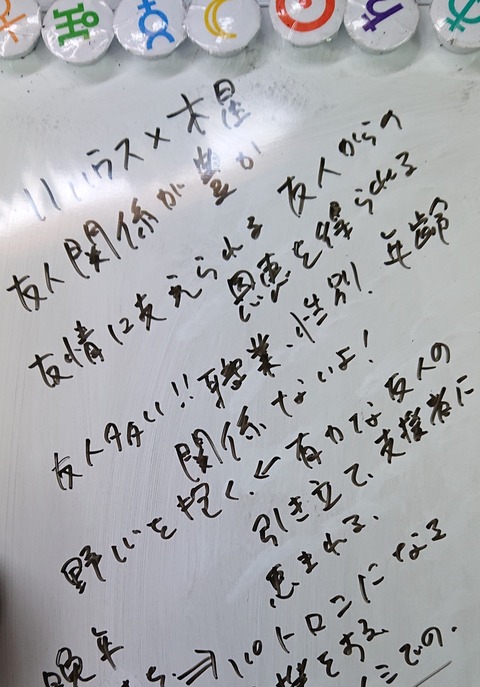 11ハウス×木星
友人関係が豊か
友情に支えられる 友人からの
恩恵を得られる
友人多い!! 職業、性別、年齢
関係ないよ!
野心を抱く ← 有力な友人の
引き立て、支援者に
恵まれる。
晩年
⇒パトロンになる
をする